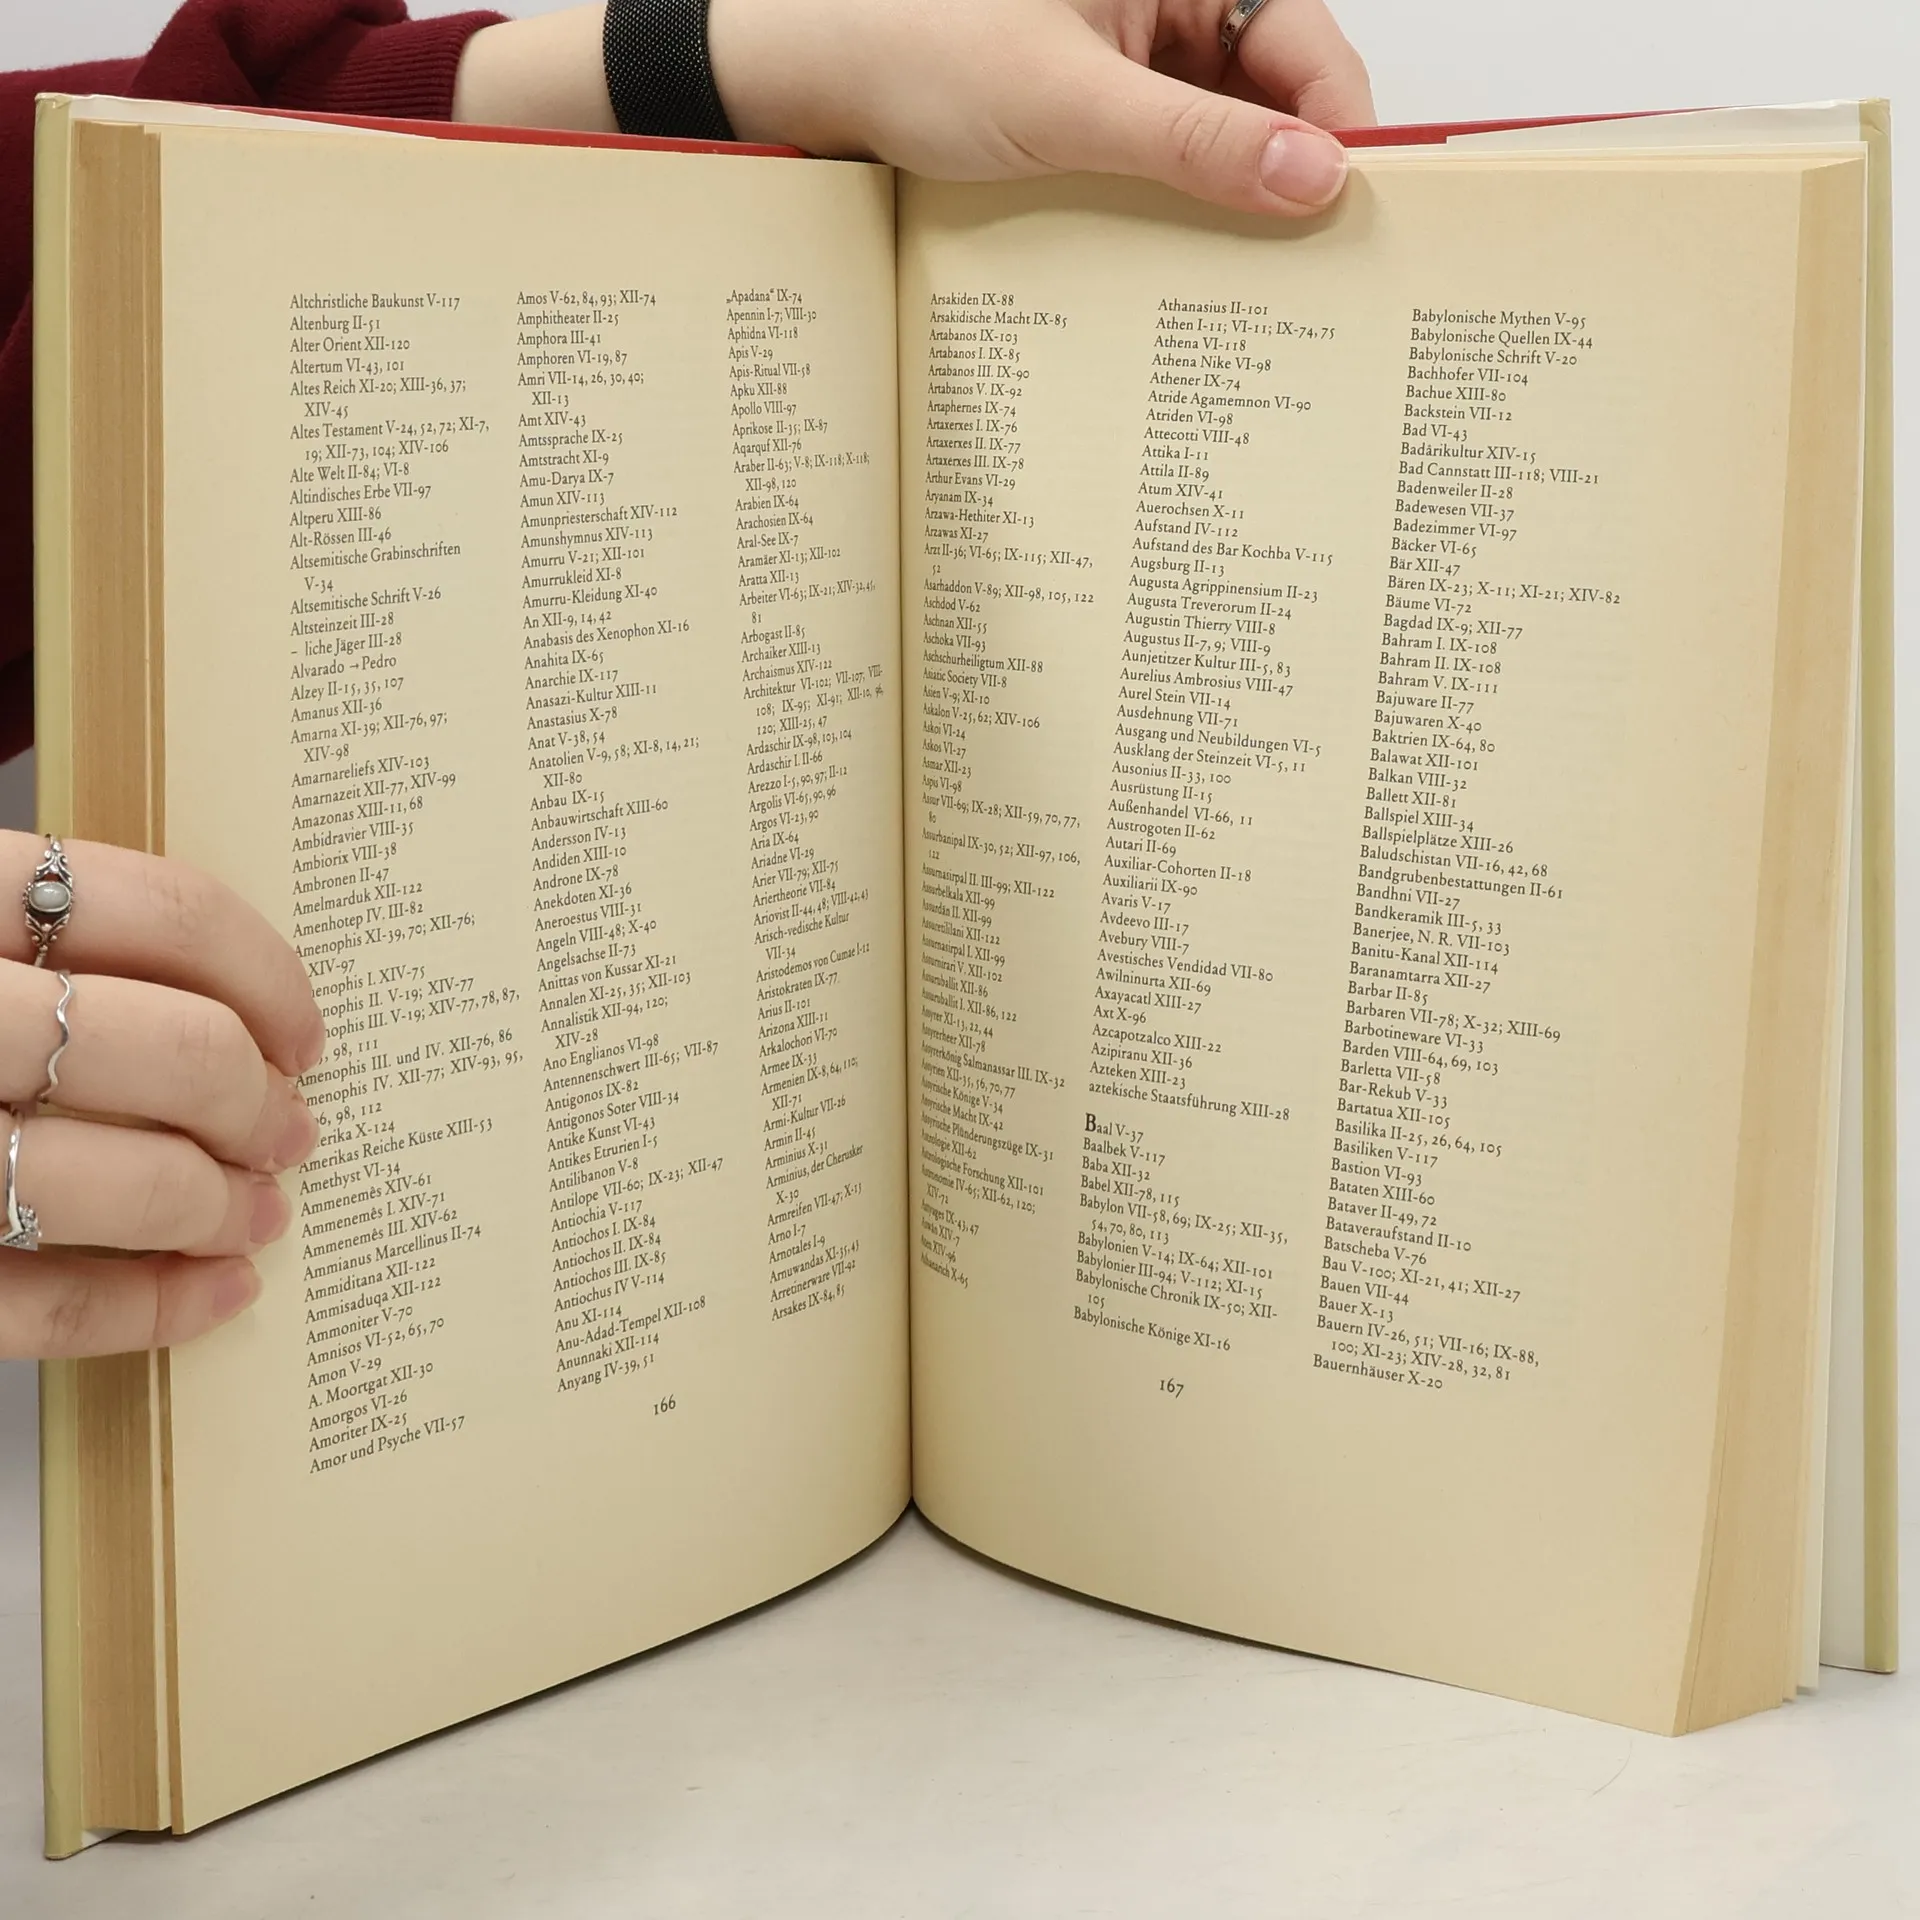 Altchristliche Baukunst V-117
Altenburg II-51
Alter Orient XII-120
Altertum VI-43, 101
Altes Reich XI-20; XIII-36, 37;
XIV-45
Altes Testament V-24, 52, 72; XI-7,
19; XII-73, 104; XIV-106
Alte Welt II-84; VI-8
Altindisches Erbe VII-97
Altperu XIII-86
Alt-Rössen III-46
Altsemitische Grabinschriften
V-34
Altsemitische Schrift V-26
Altsteinzeit III-28
– liche Jäger III-28
Alvarado → Pedro
Alzey II-15, 35, 107
Amanus XII-36
Amarna XI-39; XII-76, 97;
XIV-98
Amarnareliefs XIV-103
Amarnazeit XII-77, XIV-99
Amazonas XIII-11, 68
Ambidravier VIII-35
Ambiorix VIII-38
Ambronen II-47
Amelmarduk XII-122
Amenhotep IV. III-82
Amenophis XI-39, 70; XII-76;
XIV-97
enophis I. XIV-75
nophis II. V-19; XIV-77
nophis III. V-19; XIV-77, 78, 87,
, 98, 111
Amenophis III. und IV. XII-76, 86
menophis IV. XII-77; XIV-93, 95,
96, 98, 112
erika X-124
Amerikas Reiche Küste XIII-53
Amethyst VI-34
Ammenemês XIV-61
Ammenemês I. XIV-71
Ammenemês III. XIV-62
Ammianus Marcellinus II-74
Ammiditana XII-122
Ammisaduqa XII-122
Ammoniter V-70
Amnisos VI-52, 65, 70
Amon V-29
A. Moortgat XII-30
Amorgos VI-26
Amoriter IX-25
Amor und Psyche VII-57
Amos V-62, 84, 93; XII-74
Amphitheater II-25
Amphora III-41
Amphoren VI-19, 87
Amri VII-14, 26, 30, 40;
XII-13
Amt XIV-43
Amtssprache IX-25
Amtstracht XI-9
Amu-Darya IX-7
Amun XIV-113
Amunpriesterschaft XIV-112
Amunshymnus XIV-113
Amurru V-21; XII-101
Amurrukleid XI-8
Amurru-Kleidung XI-40
An XII-9, 14, 42
Anabasis des Xenophon XI-16
Anahita IX-65
Anarchie IX-117
Anasazi-Kultur XIII-11
Anastasius X-78
Anat V-38, 54
Anatolien V-9, 58; XI-8, 14, 21;
XII-80
Anbau IX-15
Anbauwirtschaft XIII-60
Andersson IV-13
Andiden XIII-10
Androne IX-78
Anekdoten XI-36
Aneroestus VIII-31
Angeln VIII-48; X-40
Angelsachse II-73
Anittas von Kussar XI-21
Annalen XI-25, 35; XII-103
Annalistik XII-94, 120;
XIV-28
Ano Englianos VI-98
Antennenschwert III-65; VII-87
Antigonos IX-82
Antigonos Soter VIII-34
Antike Kunst VI-43
Antikes Etrurien I-5
Antilibanon V-8
Antilope VII-60; IX-23; XII-47
Antiochia V-117
Antiochos I. IX-84
Antiochos II. IX-84
Antiochos III. IX-85
Antiochus IV V-114
Anu XI-114
Anu-Adad-Tempel XII-108
Anunnaki XII-114
Anyang IV-39, 51
„Apadana“ IX-74
Apennin I-7; VIII-30
Aphidna VI-118
Apis V-29
Apis-Ritual VII-58
Apku XII-88
Apollo VIII-97
Aprikose II-35; IX-87
Aqarquf XII-76
Araber II-63; V-8; IX-118; X-118;
XII-98, 120
Arabien IX-64
Arachosien IX-64
Aral-See IX-7
Aramäer XI-13; XII-102
Aratta XII-13
Arbeiter VI-63; IX-21; XIV-32, 45,
81
Arbogast II-85
Archaiker XIII-13
Archaismus XIV-122
Architektur VI-102; VII-107; VIII-
108; IX-95; XI-91; XII-10, 96,
120; XIII-25, 47
Ardaschir IX-98, 103, 104
Ardaschir I. II-66
Arezzo I-5, 90, 97; II-12
Argolis VI-65, 90, 96
Argos VI-23, 90
Aria IX-64
Ariadne VI-29
Arier VII-79; XII-75
Ariertheorie VII-84
Ariovist II-44, 48; VIII-42, 43
Arisch-vedische Kultur
VII-34
Aristodemos von Cumae I-12
Aristokraten IX-77
Arius II-101
Arizona XIII-11
Arkalochori VI-70
Armee IX-33
Armenien IX-8, 64, 110;
XII-71
Armi-Kultur VII-26
Armin II-45
Arminius X-31
Arminius, der Cherusker
X-30
Armreifen VII-47; X-13
Arno I-7
Arnotales I-9
Arnuwandas XI-35, 43
Arretinerware VII-92
Arsakes IX-84, 85
166
Arsakiden IX-88
Arsakidische Macht IX-85
Artabanos IX-103
Artabanos I. IX-85
Artabanos III. IX-90
Artabanos V. IX-92
Artaphernes IX-74
Artaxerxes I. IX-76
Artaxerxes II. IX-77
Artaxerxes III. IX-78
Arthur Evans VI-29
Aryanam IX-34
Arzawa-Hethiter XI-13
Arzawas XI-27
Arzt II-36; VI-65; IX-115; XII-47,
52
Asarhaddon V-89; XII-98, 105, 122
Aschdod V-62
Aschnan XII-55
Aschoka VII-93
Aschschurheiligtum XII-88
Asiatic Society VII-8
Asien V-9; XI-10
Askalon V-25, 62; XIV-106
Askoi VI-24
Askos VI-27
Asmar XII-23
Aspis VI-98
Assur VII-69; IX-28; XII-59, 70, 77,
80
Assurbanipal IX-30, 52; XII-97, 106,
122
Assurnasirpal II. III-99; XII-122
Assurbelkala XII-99
Assurdân II. XII-99
Assuretililani XII-122
Assurnasirpal I. XII-99
Assurnirari V. XII-102
Assuruballit XII-86
Assuruballit I. XII-86, 122
Assyrer XI-13, 22, 44
Assyrerheer XII-78
Assyrerkönig Salmanassar III. IX-32
Assyrien XII-35, 56, 70, 77
Assyrische Könige V-34
Assyrische Macht IX-42
Assyrische Plünderungszüge IX-31
Astrologie XII-62
Astrologische Forschung XII-101
Astronomie IV-65; XII-62, 120;
XIV-72
Astyages IX-43, 47
Aswân XIV-7
Aten XIV-96
Athanarich X-65
Athanasius II-101
Athen I-11; VI-11; IX-74, 75
Athena VI-118
Athena Nike VI-98
Athener IX-74
Atride Agamemnon VI-90
Atriden VI-98
Attecotti VIII-48
Attika I-11
Attila II-89
Atum XIV-41
Auerochsen X-11
Aufstand IV-112
Aufstand des Bar Kochba V-115
Augsburg II-13
Augusta Agrippinensium II-23
Augusta Treverorum II-24
Augustin Thierry VIII-8
Augustus II-7, 9; VIII-9
Aunjetitzer Kultur III-5, 83
Aurelius Ambrosius VIII-47
Aurel Stein VII-14
Ausdehnung VII-71
Ausgang und Neubildungen VI-5
Ausklang der Steinzeit VI-5, 11
Ausonius II-33, 100
Ausrüstung II-15
Außenhandel VI-66, 11
Austrogoten II-62
Autari II-69
Auxiliar-Cohorten II-18
Auxiliarii IX-90
Avaris V-17
Avdeevo III-17
Avebury VIII-7
Avestisches Vendidad VII-80
Awilninurta XII-69
Axayacatl XIII-27
Axt X-96
Azcapotzalco XIII-22
Azipiranu XII-36
Azteken XIII-23
aztekische Staatsführung XIII-28
Baal V-37
Baalbek V-117
Baba XII-32
Babel XII-78, 115
Babylon VII-58, 69; IX-25; XII-35,
54, 70, 80, 113
Babylonien V-14; IX-64; XII-101
Babylonier III-94; V-112; XI-15
Babylonische Chronik IX-50; XII-
105
Babylonische Könige XI-16
Babylonische Mythen V-95
Babylonische Quellen IX-44
Babylonische Schrift V-20
Bachhofer VII-104
Bachue XIII-80
Backstein VII-12
Bad VI-43
Badârikultur XIV-15
Bad Cannstatt III-118; VIII-21
Badenweiler II-28
Badewesen VII-37
Badezimmer VI-97
Bäcker VI-65
Bär XII-47
Bären IX-23; X-11; XI-21; XIV-82
Bäume VI-72
Bagdad IX-9; XII-77
Bahram I. IX-108
Bahram II. IX-108
Bahram V. IX-111
Bajuware II-77
Bajuwaren X-40
Baktrien IX-64, 80
Balawat XII-101
Balkan VIII-32
Ballett XII-81
Ballspiel XIII-34
Ballspielplätze XIII-26
Baludschistan VII-16, 42, 68
Bandgrubenbestattungen II-61
Bandhni VII-27
Bandkeramik III-5, 33
Banerjee, N. R. VII-103
Banitu-Kanal XII-114
Baranamtarra XII-27
Barbar II-85
Barbaren VII-78; X-32; XIII-69
Barbotineware VI-33
Barden VIII-64, 69, 103
Barletta VII-58
Bar-Rekub V-33
Bartatua XII-105
Basilika II-25, 26, 64, 105
Basiliken V-117
Bastion VI-93
Bataten XIII-60
Bataver II-49, 72
Bataveraufstand II-10
Batscheba V-76
Bau V-100; XI-21, 41; XII-27
Bauen VII-44
Bauer X-13
Bauern IV-26, 51; VII-16; IX-88,
100; XI-23; XIV-28, 32, 81
Bauernhäuser X-20
167